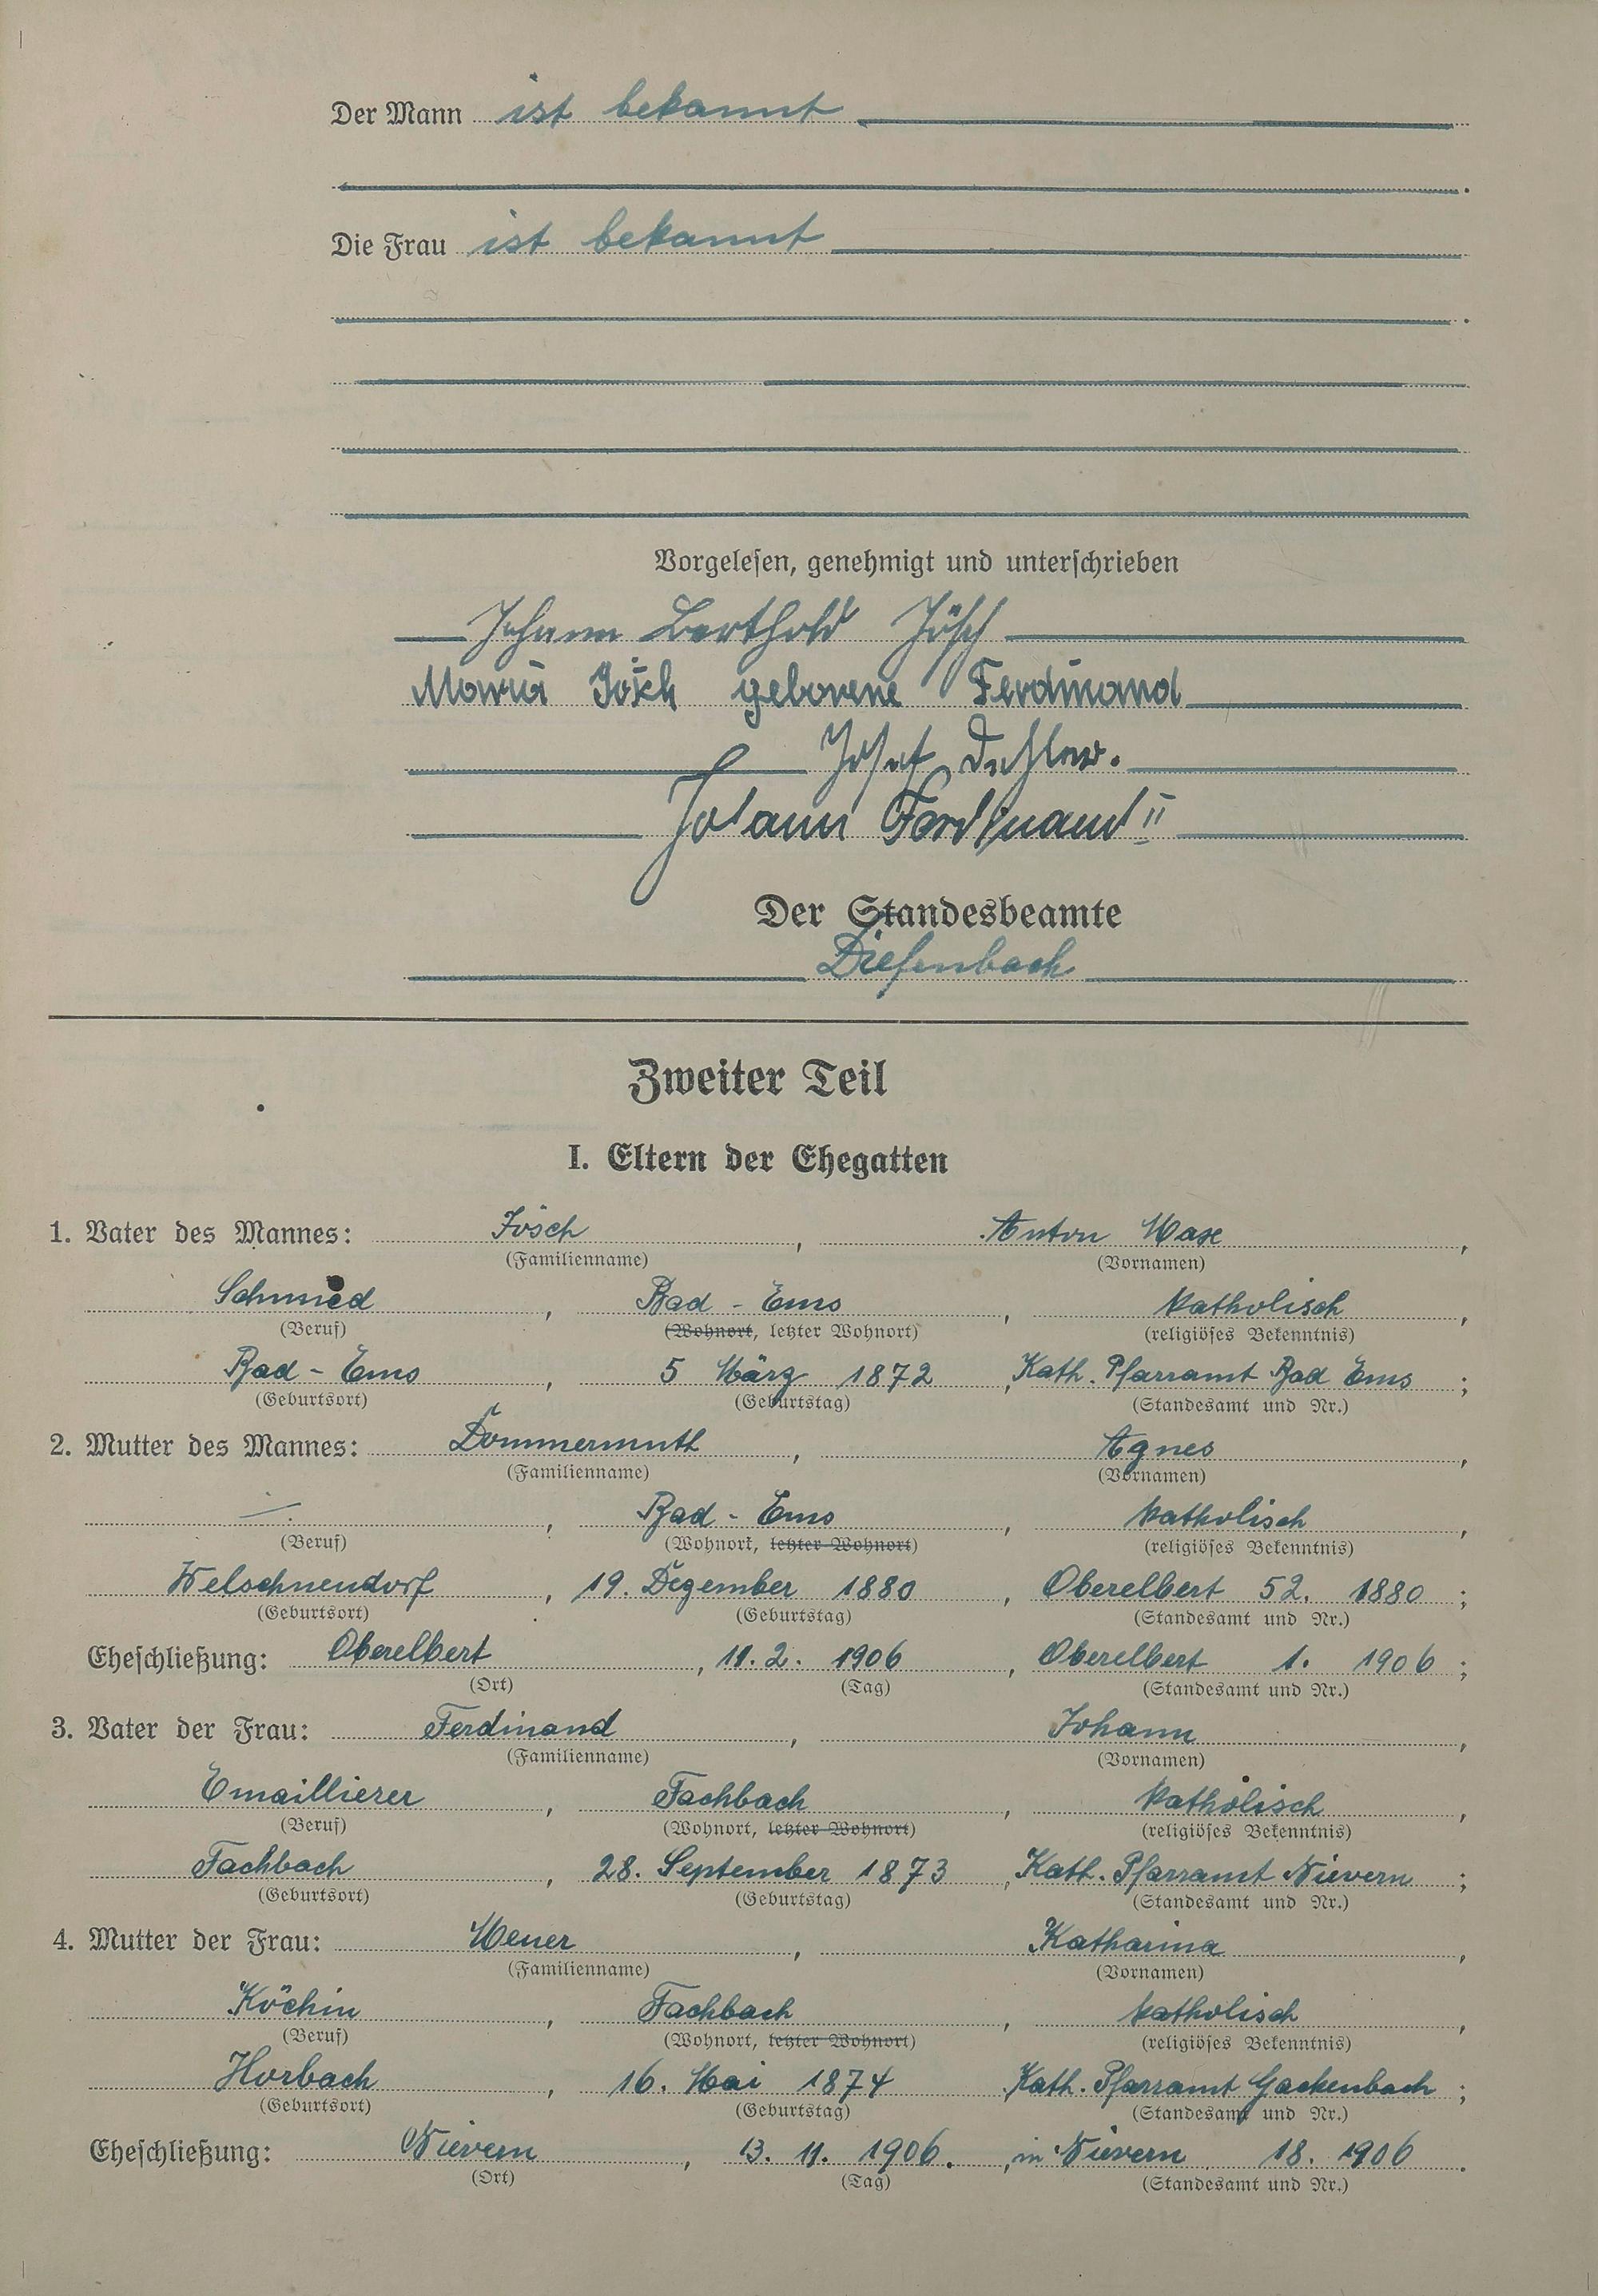 Der Mann ist bekannt
Die Frau ist bekannt
Vorgelesen, genehmigt und unterschrieben
Johann Berthold Jösch
Maria Jösch geborene Ferdinand
Josef
Johann Ferdinand II
Der Standesbeamte
Diefenbach
Zweiter Teil
I. Eltern der Ehegatten
1. Vater des Mannes: Jösch, Anton Max,
(Familienname) (Vornamen)
Schmied, Bad-Ems, katholisch,
(Beruf) (Wohnort, letzter Wohnort) (religiöses Bekenntnis)
Bad-Ems, 5 März 1872, Kath. Pfarramt Bad Ems;
(Geburtsort) (Geburtstag) (Standesamt und Nr.)
2. Mutter des Mannes: Dommermuth, Agnes,
(Familienname) (Vornamen)
—, Bad-Ems, katholisch,
(Beruf) (Wohnort, letzter Wohnort) (religiöses Bekenntnis)
Welschneudorf, 19. Dezember 1880, Oberelbert 52. 1880;
(Geburtsort) (Geburtstag) (Standesamt und Nr.)
Eheschließung: Oberelbert, 11. 2. 1906, Oberelbert 1. 1906;
(Ort) (Tag) (Standesamt und Nr.)
3. Vater der Frau: Ferdinand, Johann,
(Familienname) (Vornamen)
Emaillierer, Fachbach, katholisch,
(Beruf) (Wohnort, letzter Wohnort) (religiöses Bekenntnis)
Fachbach, 28. September 1873, Kath. Pfarramt Nievern;
(Geburtsort) (Geburtstag) (Standesamt und Nr.)
4. Mutter der Frau: Meuer, Katharina,
(Familienname) (Vornamen)
Köchin, Fachbach, katholisch,
(Beruf) (Wohnort, letzter Wohnort) (religiöses Bekenntnis)
Horbach, 16. Mai 1874 Kath. Pfarramt Gackenbach;
(Geburtsort) (Geburtstag) (Standesamt und Nr.)
Eheschließung: Nievern, 13. 11. 1906., in Nievern 18. 1906.
(Ort) (Tag) (Standesamt und Nr.)